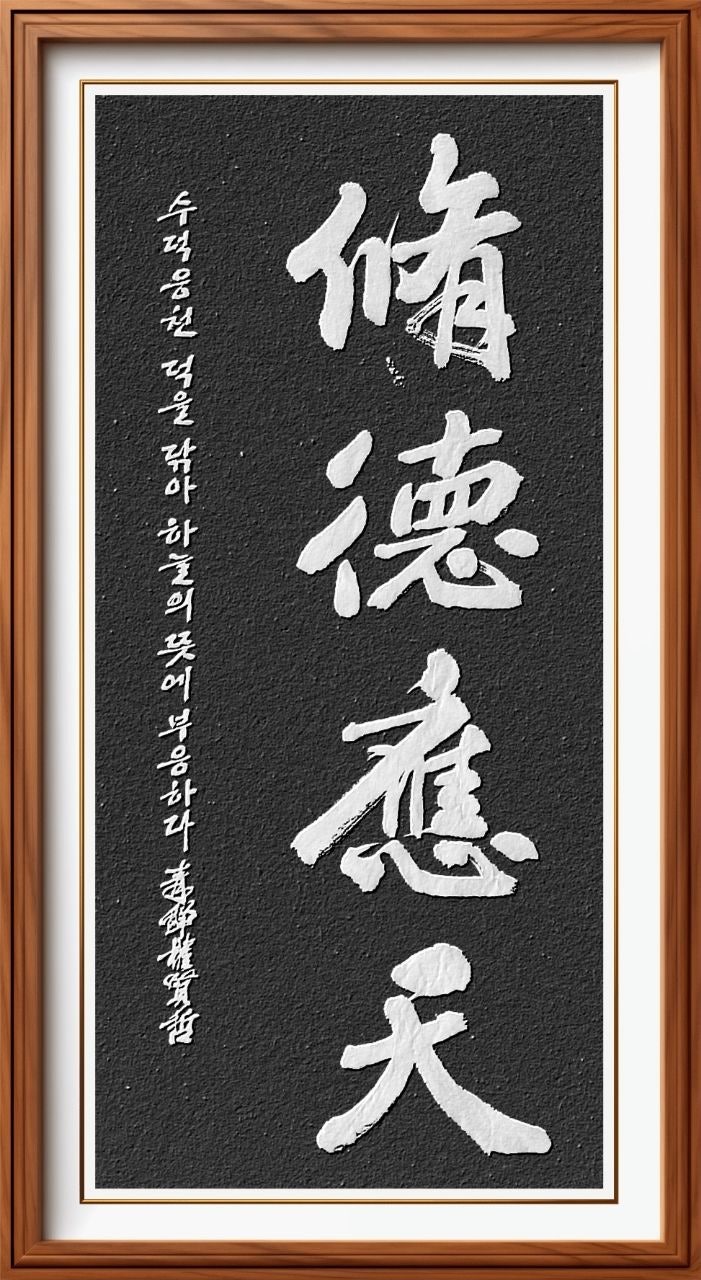 脩德應天
수덕응천 덕을 닦아 하늘의 뜻에 부응하다